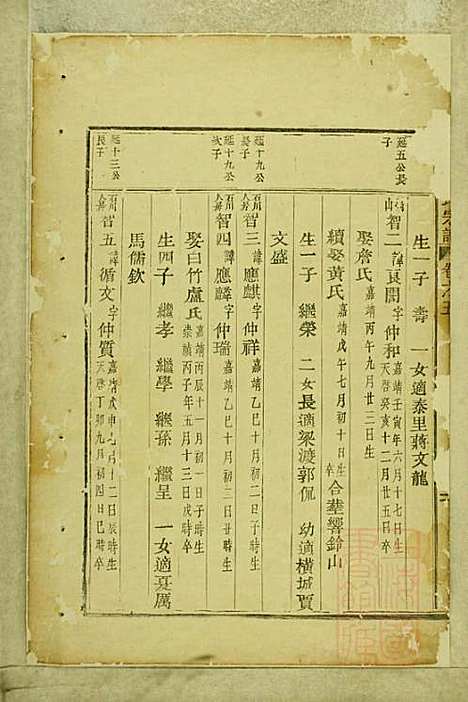 生一子 壽 一女適泰里蔣文龍
延五公長子
智二 諱良開 字仲和 嘉靖壬寅年六月十七日生 天啓癸亥十二月廿五日卒
娶詹氏 嘉靖丙午九月廿三日生
續娶黃氏 嘉靖戊午七月初十日生 卒 合葬響鈴山
生一子 繼榮 二女長適梁渡郭侃 幼適橫城賈
文盛
延十九公長子
石川人昇 智三 諱應麒 字仲祥 嘉靖乙巳十月初二日子時生
延十九公次子
石川人昇 智四 諱應麟 字仲瑞 嘉靖乙巳十月初三日丑時生
娶白竹盧氏 嘉靖丙辰十一月初一日子時生 崇禎丙子年五月十三日戌時卒
生四子 繼孝 繼學 繼孫 繼呈 一女適夏厲
馬儒欽
延十三公長子
石川人昇 智五 諱循文 字仲質 嘉靖戊申七月十二日辰時生 天啓丁卯九月初四日巳時卒